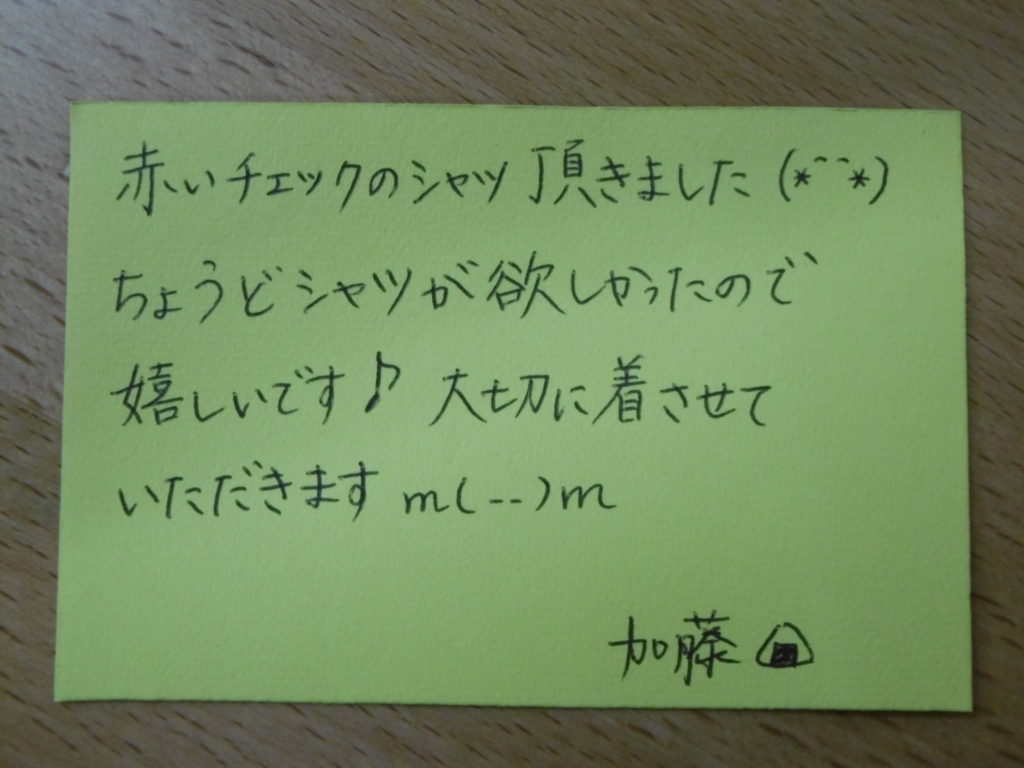 赤いチェックのシャツ頂きました(*^^*)
ちょうどシャツが欲しかったので
嬉しいです♪ 大切に着させて
いただきます m(--)m
加藤🍙